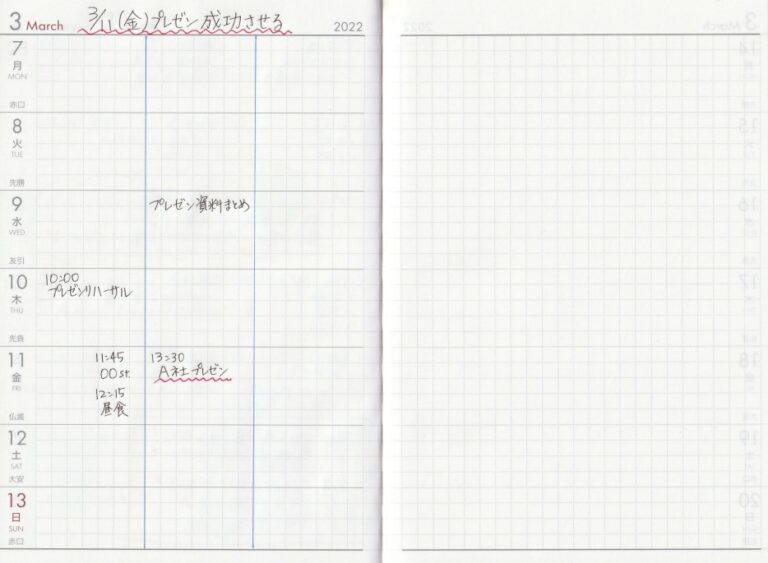 3 March 3/11(金)プレゼン成功させる 2022
7
月
MON
赤口
8
火
TUE
先勝
9
水
WED
友引
プレゼン資料まとめ
10
木
THU
先負
10:00
プレゼンリハーサル
11
金
FRI
仏滅
11:45
00st.
12:15
昼食
13:30
A社プレゼン
12
土
SAT
大安
13
日
SUN
赤口